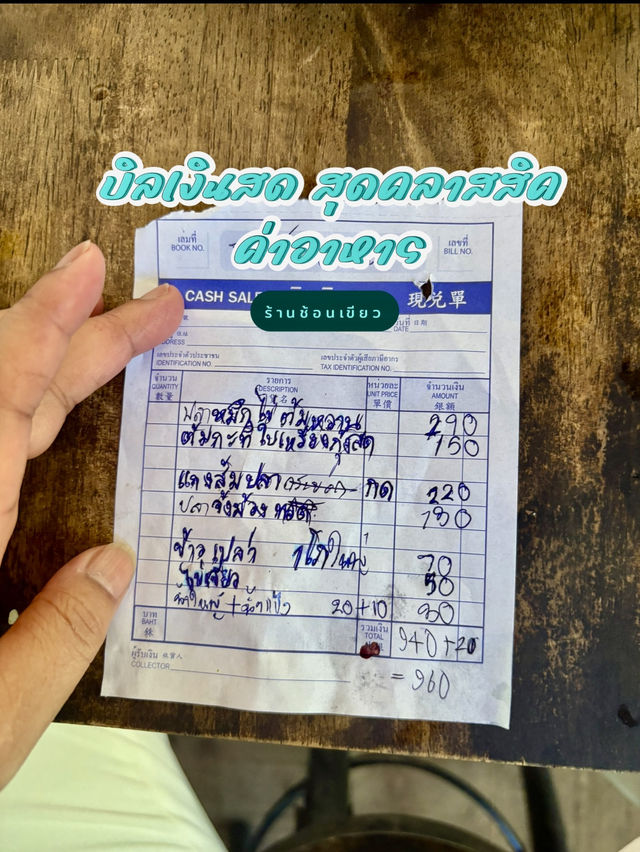 บิลเงินสด สุดคลาสสิค
ค่าอาหาร
ร้านช้อนเขียว
เล่มที่
BOOK NO.
เลขที่
BILL NO.
CASH SALE
現兌單
日期
DATE
ADDRESS
เลขประจำตัวประชาชน
IDENTIFICATION NO.
เลขประจำตัวผู้เสียภาษีอากร
TAX IDENTIFICATION NO.
จำนวน
QUANTITY
數量
รายการ
DESCRIPTION
หน่วยละ
UNIT PRICE
單價
จำนวนเงิน
AMOUNT
銀額
ปลาหมึกไข่ต้มหวาน 290
ต้มกะทิใบเหรียงกุ้งสด 150
แกงส้มปลา กด 220
ปลาจิ้งม้วง 130
ข้าวเปล่า 1โถใหญ่ 70
ไข่เจียว 50
น้ำใหญ่ + น้ำแข็ง 20+10 30
บาท
BAHT
銖
รวมเงิน
TOTAL
940+20
= 960
ผู้รับเงิน 收貨人
COLLECTOR